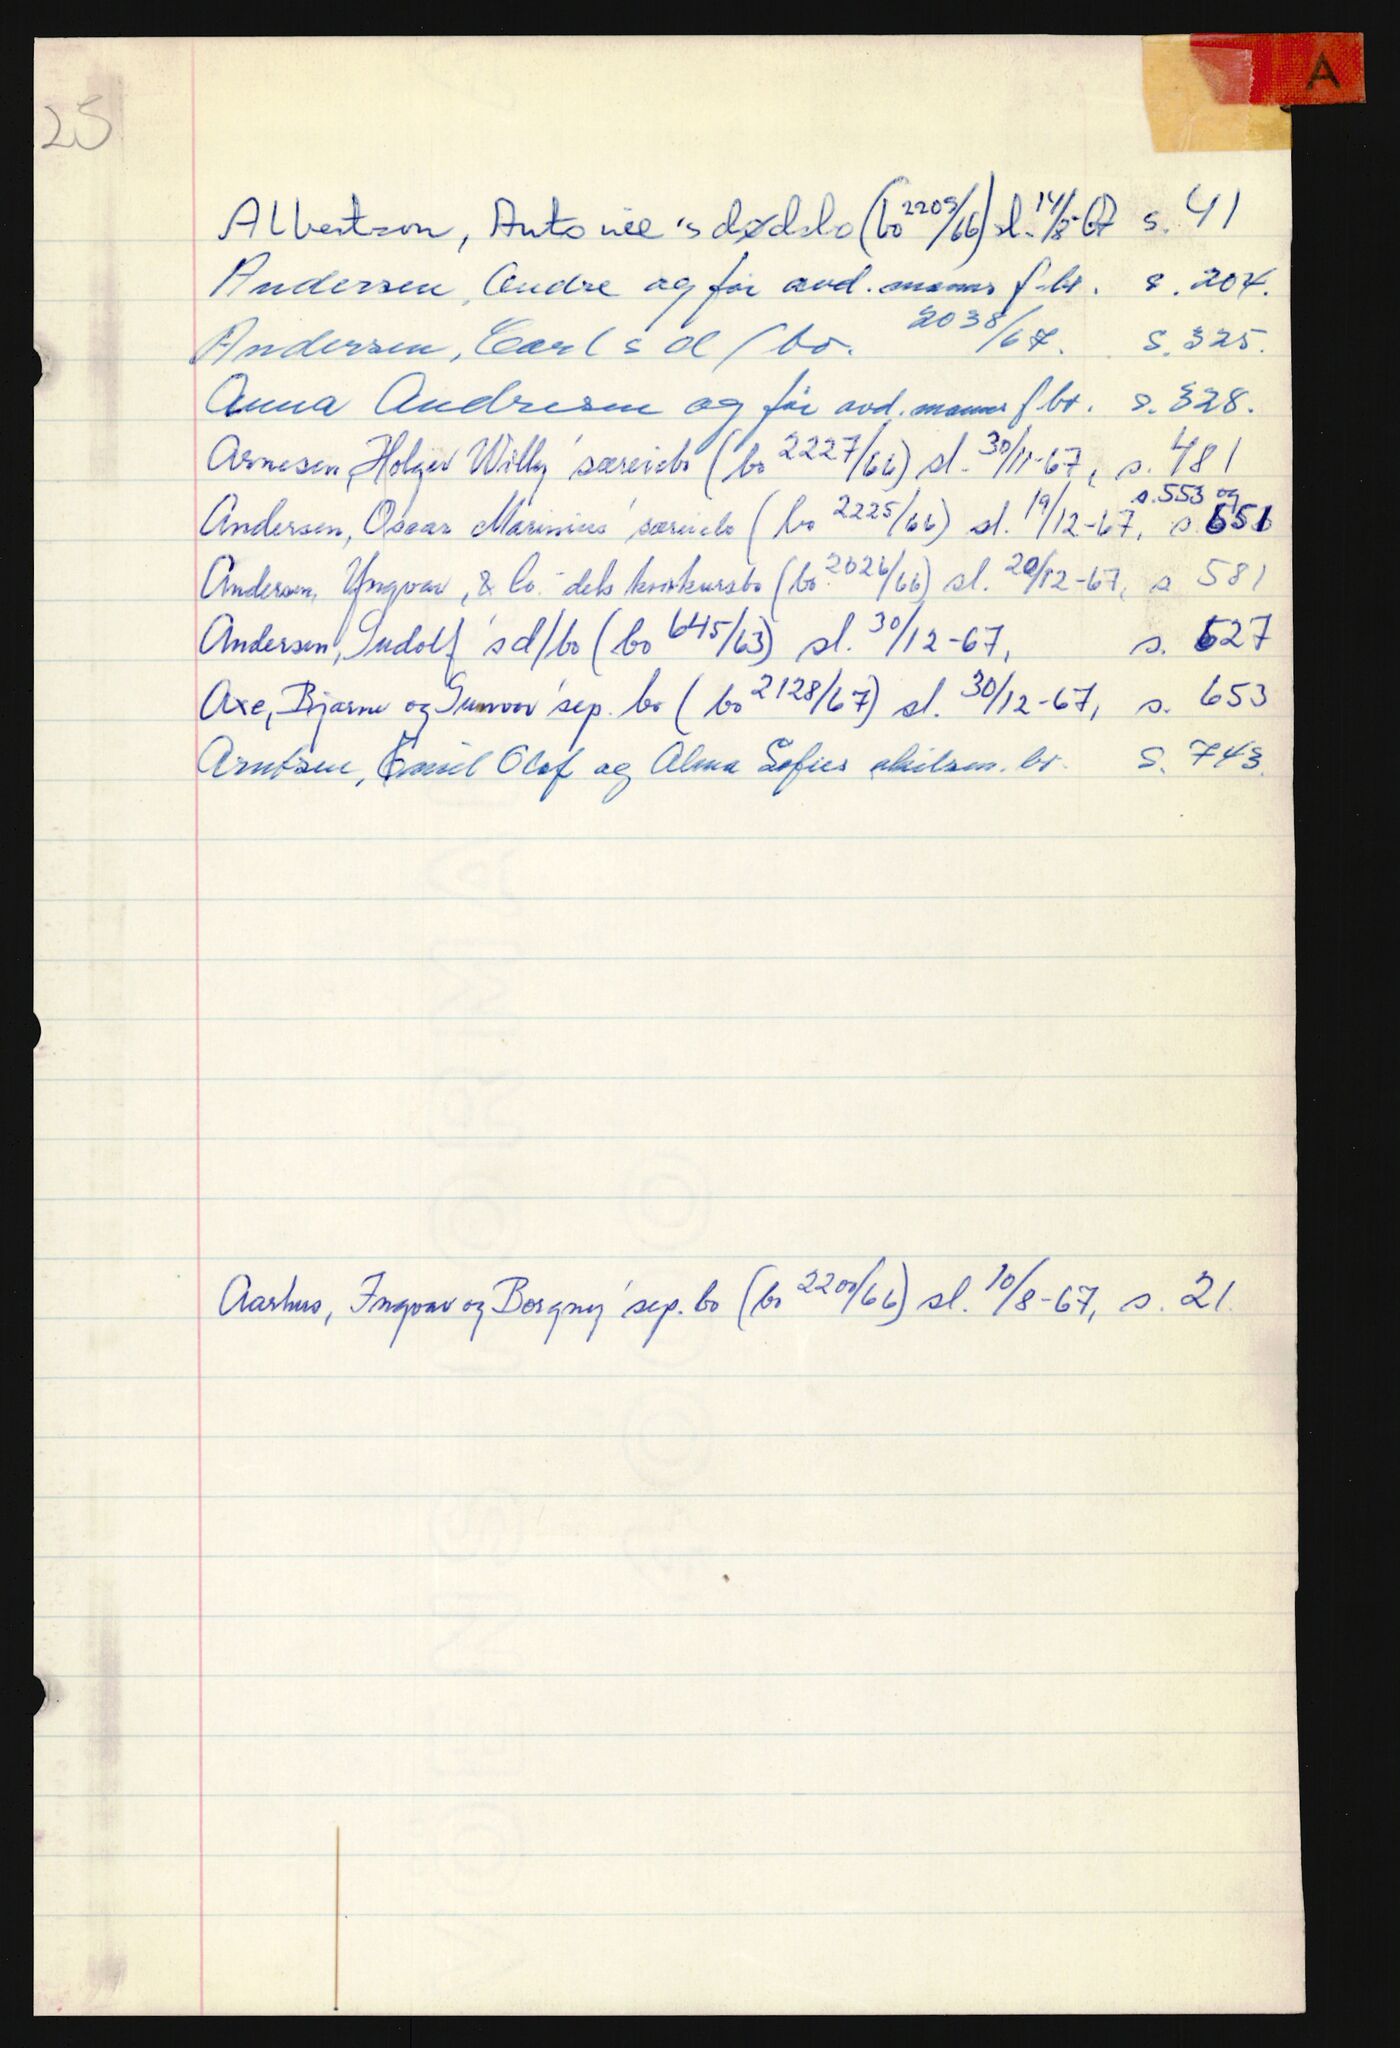 A
25
Albertson, Antonie's dødsbo (bo 2205/66) sl. 14/8-67 s. 41
Andersen, Andre og før avd. manns f.bo. s. 204.
Andersen, Carl s d/bo. 2038/67. S. 325.
Anna Andresen og før avd. manns f.bo. s. 328.
Arnesen, Holger Willy' særeiebo (bo 2227/66) sl. 30/11-67, s. 481
Andersen, Oscar Marinius' særeiebo (bo 2225/66) sl. 19/12-67, s. 553 og s. 651
Andersen, Yngvar, & Co. dets konkursbo (bo 2026/66) sl. 20/12-67, s 581
Andersen, 's d/bo (bo 645/63) sl. 30/12-67, s. 627
Axe, Bjarne og Gunvor' sep. bo (bo 2128/67) sl. 30/12-67, s. 653
Arntsen, Emil Olaf og Alma Sofies bo. S. 743.
Aarhus, Ingvar og Borgny' sep. bo (bo 2200/66) sl. 10/8-67, s. 21.